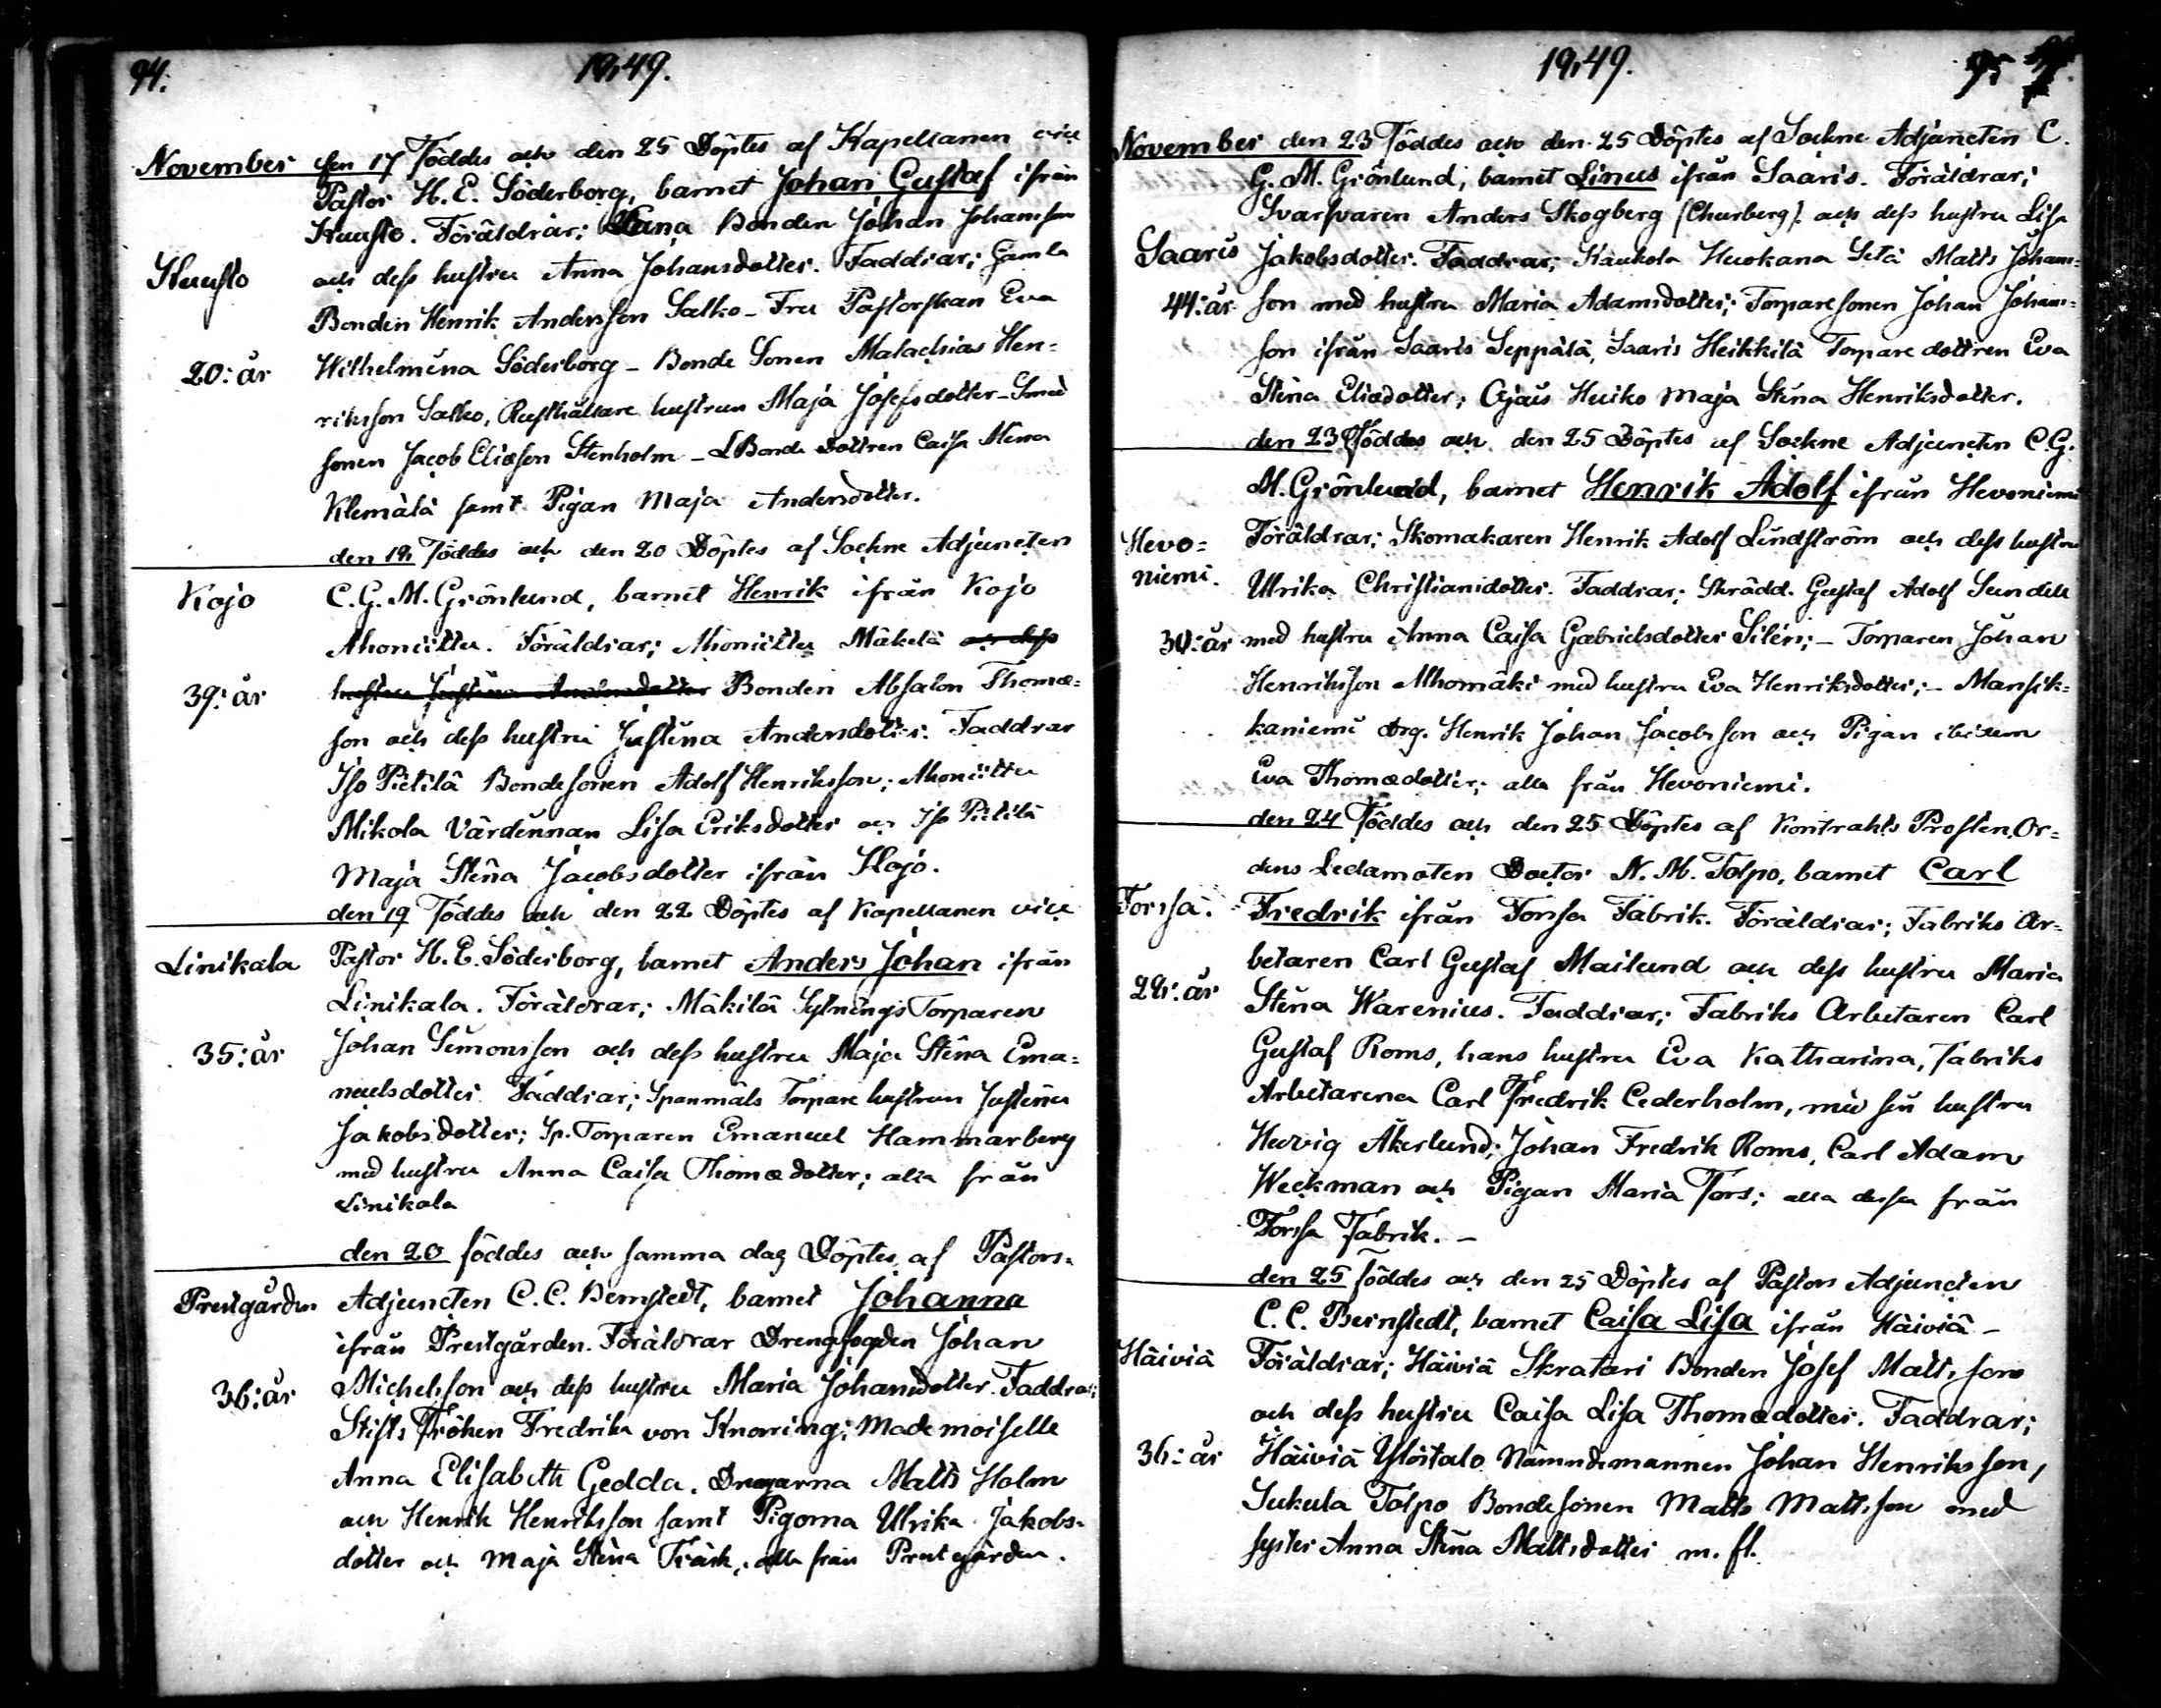 94.
1849.
November den 17 Föddes och den 25 Döptes af Kapellanen vice
Pastor H. E. Söderborg, barnet Johan Gustaf ifrån
Kuusto. Föräldrar; Bonden Johan Johansson
Kuusto
och dess hustru Anna Johansdotter. Faddrar; Gamla
Bonden Henrik Andersson Salko - Fru Pastorskan Eva
20: år
Wilhelmina Söderborg - Bonde Sonen Malachias Hen=
riksson Salko, Rusthållare hustrun Maja Josefsdotter - Smed
sonen Jacob Eliasson Stenholm - Bonde Dottren Caisa Stina
Klemälä samt Pigan Maja Andersdotter.
den 18 Föddes och den 20 Döptes af Sockne Adjuncten
Kojo
C. G. M. Grönlund, barnet Henrik ifrån Kojo
Ahoniittu. Föräldrar; Ahoniittu Mäkelä och dess
39: år
hustru Justina Andersdotter Bonden Absalon Thomæ=
son och dess hustru Justina Andersdotter. Faddrar
Iso Pietilä Bondesonen Adolf Henriksson; Ahoniittu
Mikola Värdinnan Lisa Eriksdotter och Iso Pietilä
Maja Stina Jacobsdotter ifrån Kojo.
den 19 Föddes och den 22 Döptes af Kapellanen vice
Linikala
Pastor H. E. Söderborg, barnet Anders Johan ifrån
Linikala. Föräldrar; Mäkilä Sytnings Torparen
35: år
Johan Simonsson och dess hustru Maja Stina Ema=
nuelsdotter. Faddrar; Spanmåls Torpare hustrun Justina
Jakobsdotter; Sp. Torparen Emanuel Hammarberg
med hustru Anna Caisa Thomædotter; alla från
Linikala
den 20 föddes och samma dag Döptes af Pastors=
Prestgården
Adjuncten C. C. Bernstedt, barnet Johanna
ifrån Prestgården. Föräldrar Drengfogden Johan
36: år
Michelsson och dess hustru Maria Johansdotter. Faddrar;
Stifts Fröken Fredrika von Knorring; Mademoiselle
Anna Elisabeth Gedda. Drengarna Matts Holm
och Henrik Henriksson samt Pigorna Ulrika Jakobs=
dotter och Maja Stina Träsk, alla från Prestgården.
1849.
95
November den 23 Föddes och den 25 Döptes af Sockne Adjuncten C.
G. M. Grönlund, barnet Linus ifrån Saaris. Föräldrar;
Svarfvaren Anders Skogberg (Churberg) och dess hustru Lisa
Saaris
Jakobsdotter. Faddrar; Kaukola Huokana Setä Matts Johans=
44: år
son med hustru Maria Adamsdotter; Torparesonen Johan Johans=
son ifrån Saaris Seppälä, Saaris Heikkilä Torpare dottren Eva
Stina Eliædotter; Ojais Huiko Maja Stina Henriksdotter.
den 23 Föddes och den 25 Döptes af Sockne Adjuncten C. G.
M. Grönlund, barnet Henrik Adolf ifrån Hevoniemi
Hevo=
niemi.
Föräldrar; Skomakaren Henrik Adolf Lindström och dess hustru
Ulrika Christiansdotter. Faddrar; Skrädd. Gustaf Adolf Sundell
30: år
med hustru Anna Caisa Gabrielsdotter Silén; - Torparen Johan
Henriksson Ahomäki med hustru Eva Henriksdotter; - Mansik=
kaniemi drg. Henrik Johan Jacobsson och Pigan ibidem
Eva Thomædotter; alla från Hevoniemi.
den 24 Föddes och den 25 Döptes af Kontrakts Prosten, Or=
dens Ledamoten Doctor N. M. Tolpo, barnet Carl
Forssa.
Fredrik ifrån Forssa Fabrik. Föräldrar; Fabriks Ar=
betaren Carl Gustaf Mailund och dess hustru Maria
28: år
Stina Warenius. Faddrar; Fabriks Arbetaren Carl
Gustaf Roms, hans hustru Eva Katharina, Fabriks
Arbetarena Carl Fredrik Cederholm, med sin hustru
Hedvig Åkerlund; Johan Fredrik Roms, Carl Adam
Weckman och Pigan Maria Fors; alla dessa från
Forssa Fabrik. -
den 25 föddes och den 25 Döptes af Pastors Adjuncten
C. C. Bernstedt, barnet Caisa Lisa ifrån Häiviä -
Häiviä
Föräldrar; Häiviä Skratari Bonden Josef Mattsson
och dess hustru Caisa Lisa Thomædotter. Faddrar;
36: år
Häiviä Ylöstalo Nämndemannen Johan Henriksson,
Sukula Tolpo Bondesonen Matts Mattsson med
syster Anna Stina Mattsdotter m. fl.